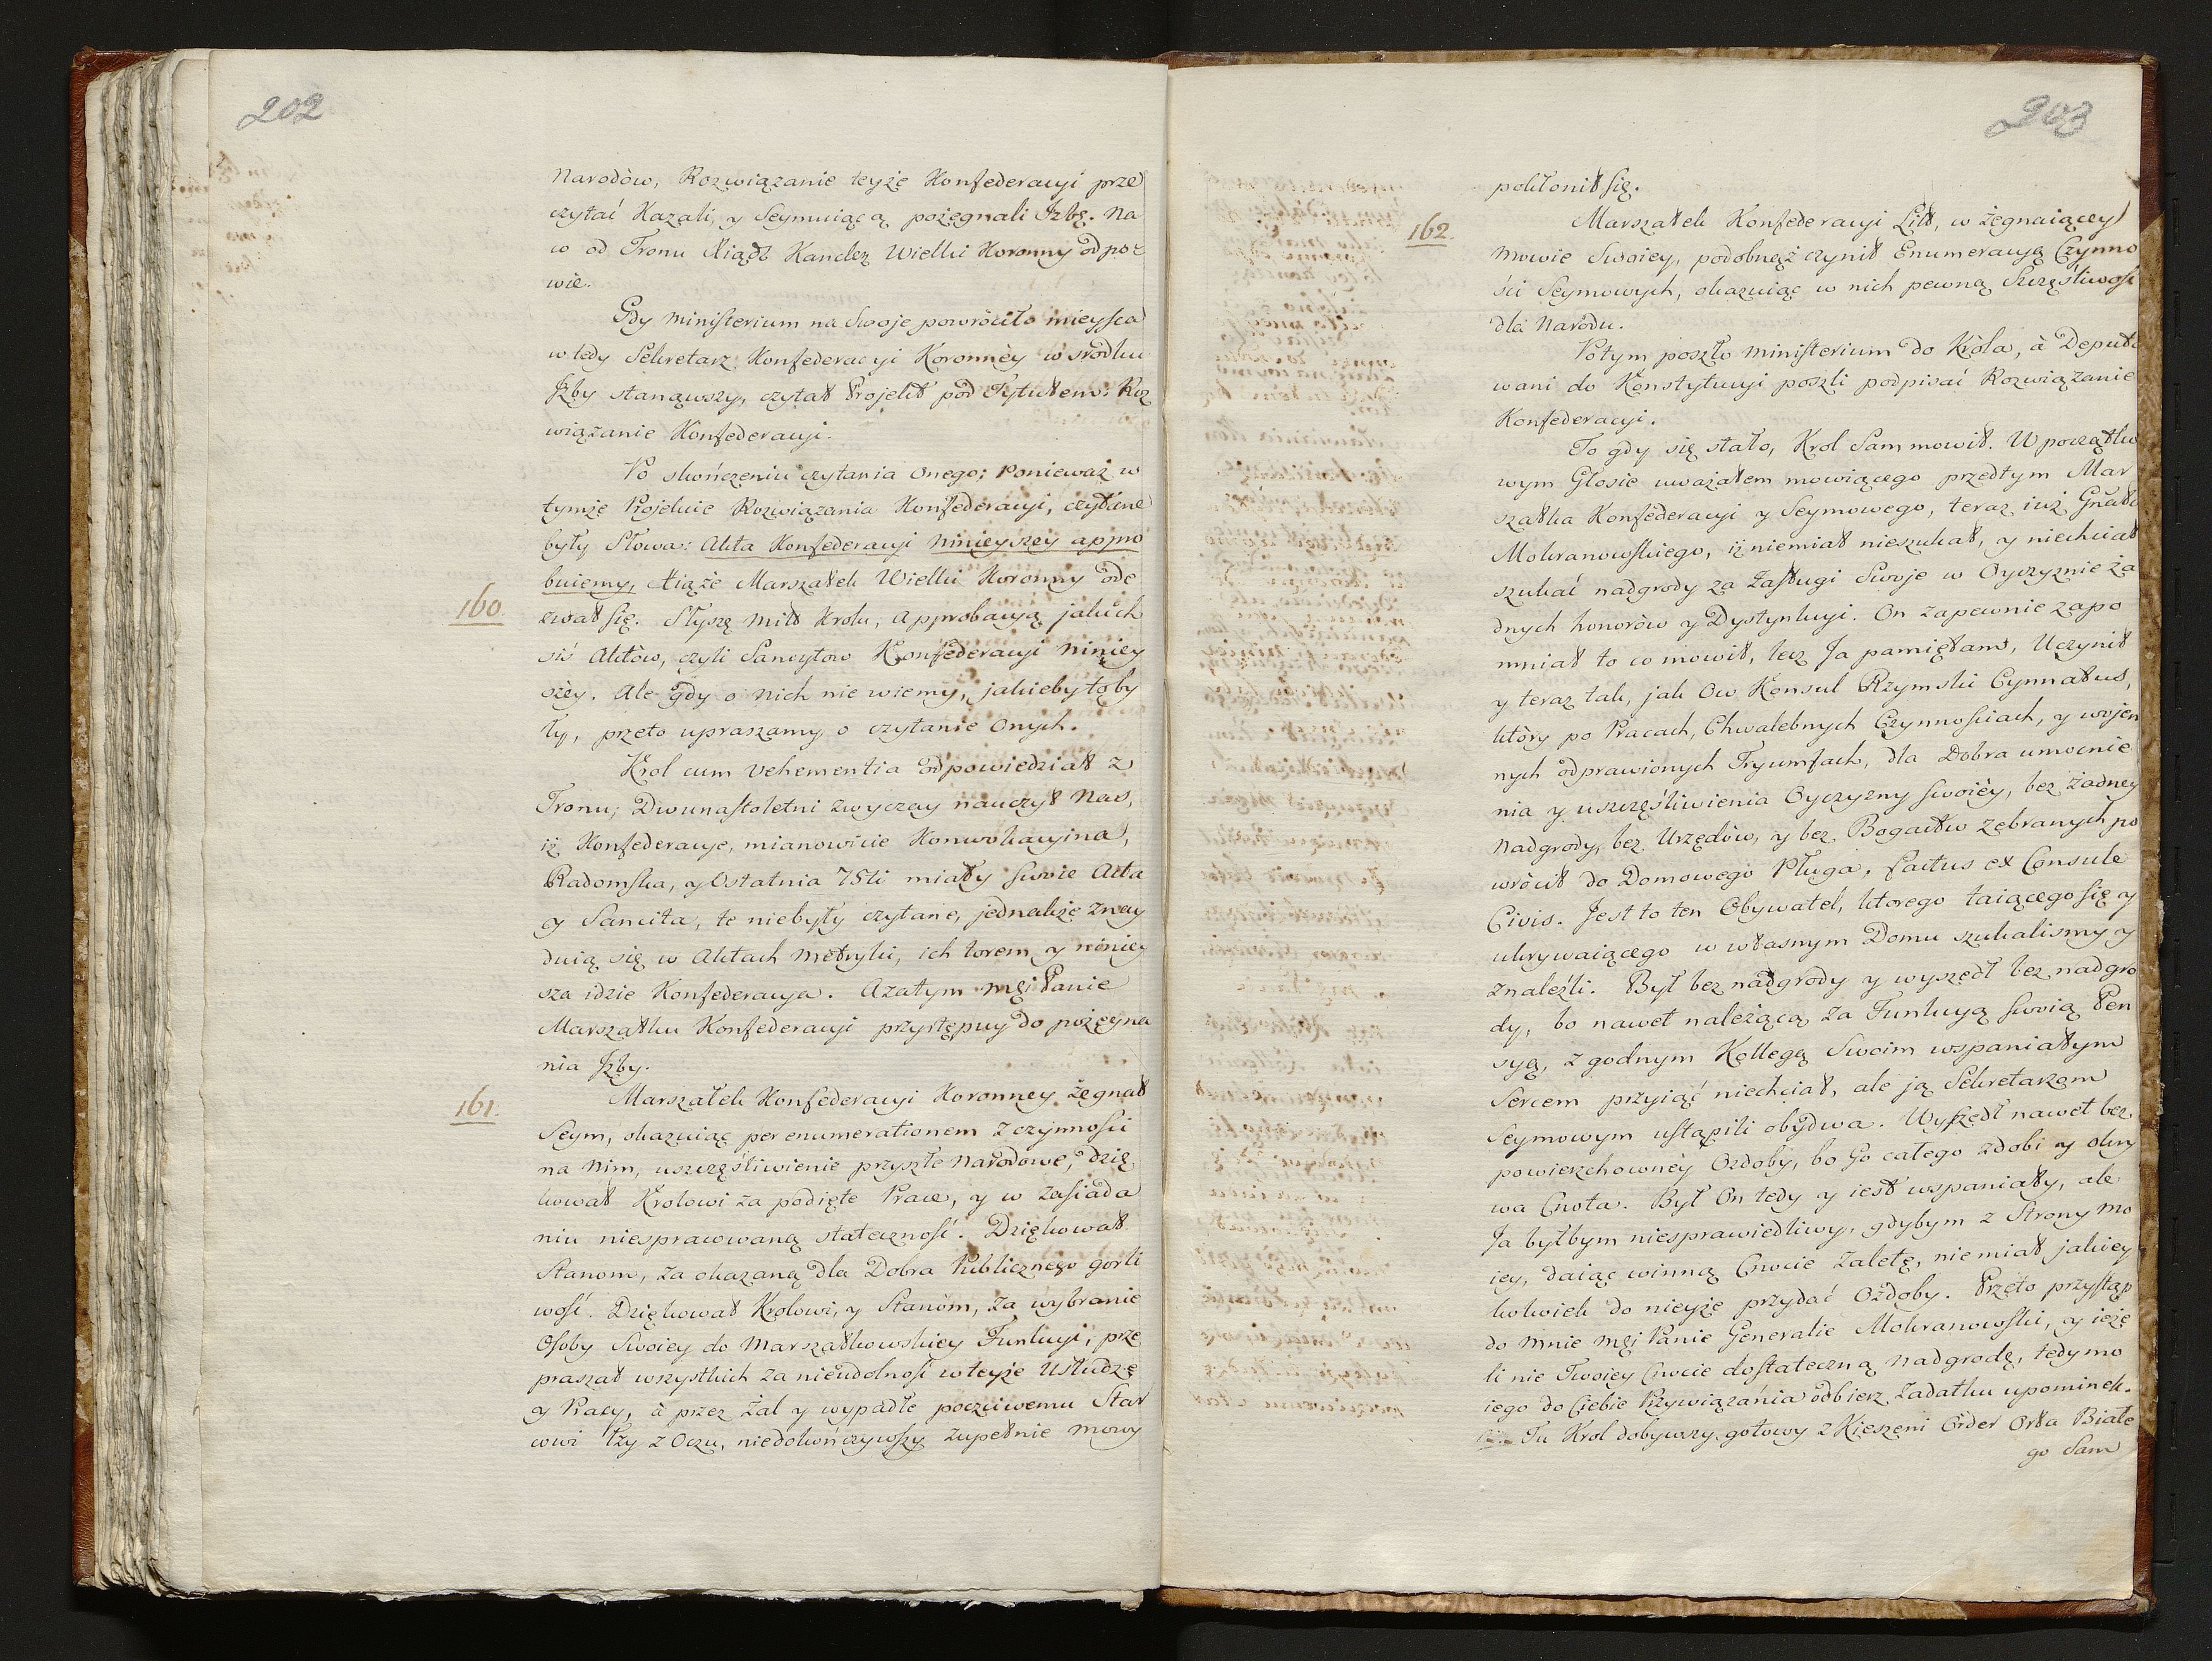 202
Narodòw, Rozwiązanie teyże Konfederacyi prze
czytać Kazali, y Seymuiącą pożegnali Jzbę. Na
co od Tronu Xiądz Kanclerz Wielki Koronny odpo
wie.
Gdy Ministerium na Swoje powròciło mieysca
wtedy Sekretarz Konfederacyi Koronnèy w srodku
Jzby stanąwszy, czytał Projekt pod Tytułem: Roz
wiązanie Konfederacyi.
Po skończeniu czytania onego; Ponieważ w
tymże Projekcie Rozwiązania Konfederacyi, czytane
były Słowa: Akta Konfederacyi Ninieyszey appro
bujemy, Xiąże Marszałek Wielki Koronny ode
160.
zwał się. Słyszę Miło Krolu, approbacyą jakich
siś Aktòw, czyli Sancytow Konfederacyi Niniey
szèy. Ale gdy o nich nie wiemy, jakieby to by
ły, przeto upraszamy o czytanie onych.
Krol cum vehementia odpowiedział z
Tronu; Dwunastoletni zwyczay nauczył Nas,
iż Konfederacye, mianowicie Konwokacyina,
Radomska, y Ostatnia 75ti miały swoie Akta
y Sancita, te niebyły czytane, jednakże znay
duią się w Aktach Metryki, ich torem y niniey
sza idzie Konfederacya. Azatym Mći Panie
Marszałku Konfederacyi przystępuy do pożegna
nia Jzby.
161.
Marszałek Konfederacyi Koronney żegnał
Seym, okazuiąc per enumerationem z czynności
na nim, uszczęśliwienie przyszłe Narodowe, Dzię
kował Krolowi za podięte Prace, y w zasiada
niu niespracowaną stateczność. Dziękował
Stanom, za okazaną dla Dobra Publicznego gorli
wość. Dziękował Krolowi, y Stanóm, za wybranie
Osoby Swoiey do Marszałkowskiey Funkcyi, prze
praszał wszystkich za nieudolność w teyże Usłudze
y Pracy, à przez żal y wypadłe poczciwemu Star
cowi łzy z Oczu, niedokończywszy zupełnie mowy
203
pokłonił się.
162.
Marszałek Konfederacyi Litt, w żegnaiącey
mowie Swoiey, podobnąż czynił Enumeracyą Czynno
ści Seymowych, okazuiąc w nich pewną Szczęśliwość
dla Narodu.
Potym poszło Ministerium do Kròla, à Deputo
wani do Konstytucyi poszli podpisać Rozwiązanie
Konfederacyi.
To gdy się stało, Krol Sam mowił. W początko
wym Głosie uważałem mowiącego przedtym Mar
szałka Konfederacyi y Seymowego, teraz iuż Gnała
Mokranowskiego, iż niemiał nieszukał, y niechciał
szukać nadgrody za Zasługi Swoje w Oyczyznie ża
dnych honoròw y Dystynkcyi. On zapewnie zapo
mniał to co mowił, lecz Ja pamiętam, Uczynił
y teraz tak, jak Ow Konsul Rzymski Cynnatus,
ktòry po Pracach, Chwalebnych Czynnościach, y wojen
nych odprawionych Tryumfach, dla Dobra umocnie
nia y uszczęśliwienia Oyczyzny swoièy, bez żadney
Nadgrody, bez Urzędòw, y bez Bogactw zebranych po
wròcił do Domowego Pługa, factus ex Consule
Civis. Jest to ten Obywatel, ktorego taiącego się y
ukrywaiącego w własnym Domu szukalismy y
znaleźli. Był bez nadgrody y wyszedł bez nadgro
dy, bo nawet należącą za Funkcyą swoią Pen
syą, z godnym Kollegą Swoim wspaniałym
Sercem przyiąć niechciał, ale ją Sekretarzom
Seymowym ustąpili obydwa. Wyszedł nawet bez
powierzchownèy Ozdoby, bo Go całego zdobi y okry
wa Cnota. Był On tedy y iest wspaniały, ale
Ja byłbym niesprawiedliwy, gdybym z Strony mo
iey, daiąc winną Cnocie Zaletę, nie miał jakiey
kolwiek do nieyże przydać Ozdoby. Przeto przystąp
do mnie Mći Panie Generale Mokranowski, y ieże
li nie Twoiey Cnocie dostateczną nadgrodę, tedy mo
iego do Ciebie Przywiązania odbierz Zadatku upominek.
Tu Krol dobywszy gotowy z Kieszeni Order Orła Białe
go Sam